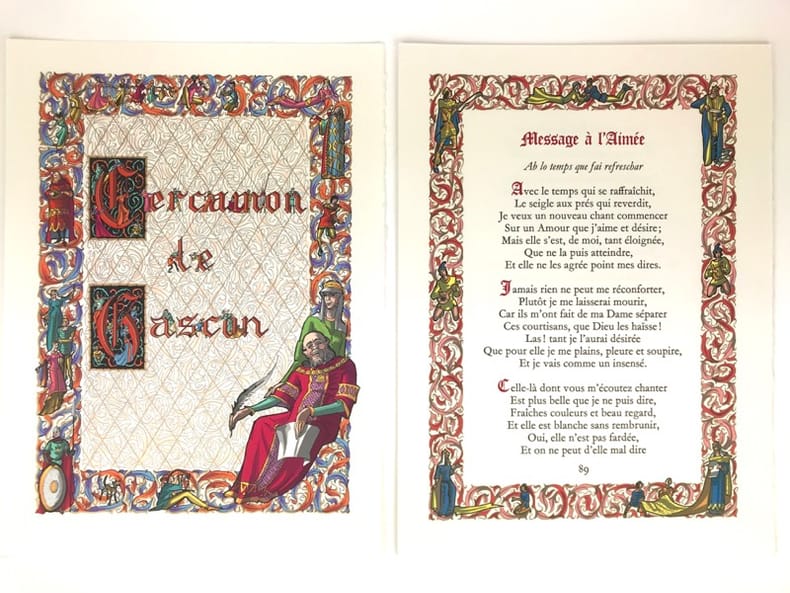 Cercamon
de
Gascon
Message à l'Aimée
Ab lo temps que fai refreschar
Avec le temps qui se raffraîchit,
Le seigle aux prés qui reverdit,
Je veux un nouveau chant commencer
Sur un Amour que j'aime et désire;
Mais elle s'est, de moi, tant éloignée,
Que ne la puis atteindre,
Et elle ne les agrée point mes dires.
Jamais rien ne peut me réconforter,
Plutôt je me laisserai mourir,
Car ils m'ont fait de ma Dame séparer
Ces courtisans, que Dieu les haïsse!
Las! tant je l'aurai désirée
Que pour elle je me plains, pleure et soupire,
Et je vais comme un insensé.
Celle-là dont vous m'écoutez chanter
Est plus belle que je ne puis dire,
Fraîches couleurs et beau regard,
Et elle est blanche sans rembrunir,
Oui, elle n'est pas fardée,
Et on ne peut d'elle mal dire
89